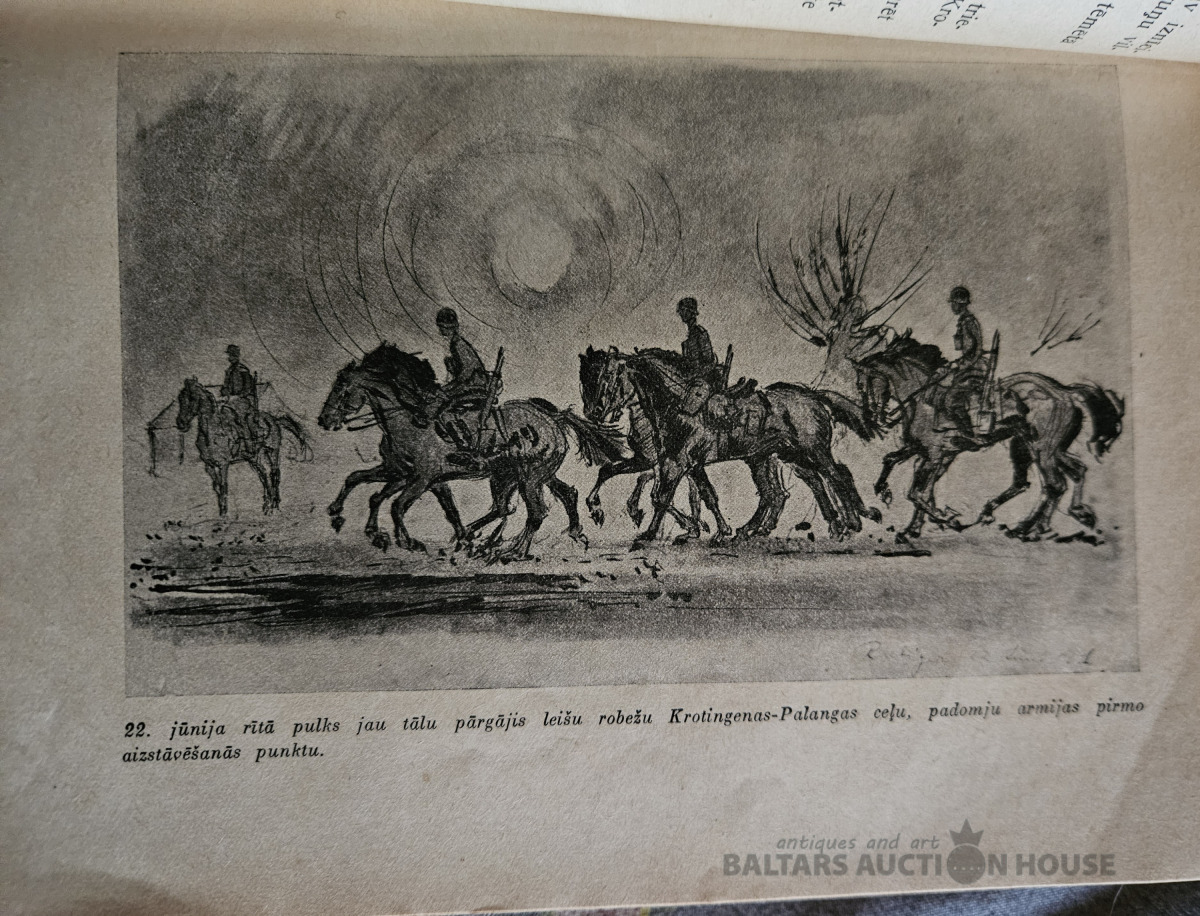 v izni
uņu vil.
tēmēta
trie-
Kro-
ret
t-
e
22. jūnija rītā pulks jau tālu pārgājis leišu robežu Krotingenas-Palangas ceļu, padomju armijas pirmo
aizstāvēšanās punktu.
antiques and art
BALTARS AUCTION HOUSE